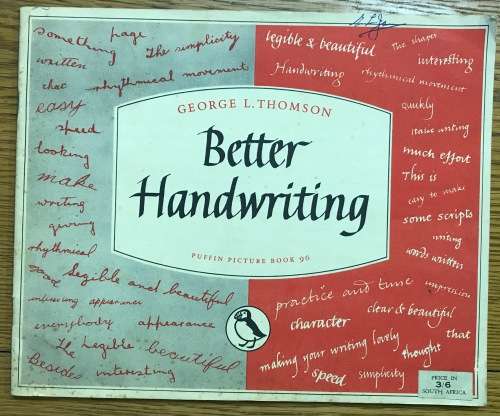 something page
The simplicity
written
that rhythmical movement
easy
speed
looking
make
writing
giving
rhythmical
page legible and beautiful
interesting appearance
everybody appearance
The legible beautiful
Besides interesting
legible & beautiful
The shapes
interesting
Handwriting rhythmical movement
quickly
italic writing
much effort
This is
easy to make
some scripts
writing
words written
GEORGE L. THOMSON
Better
Handwriting
PUFFIN PICTURE BOOK 96
practice and time impression
clear & beautiful
character
that
making your writing lovely
thought
speed simplicity
PRICE IN
3/6
SOUTH AFRICA